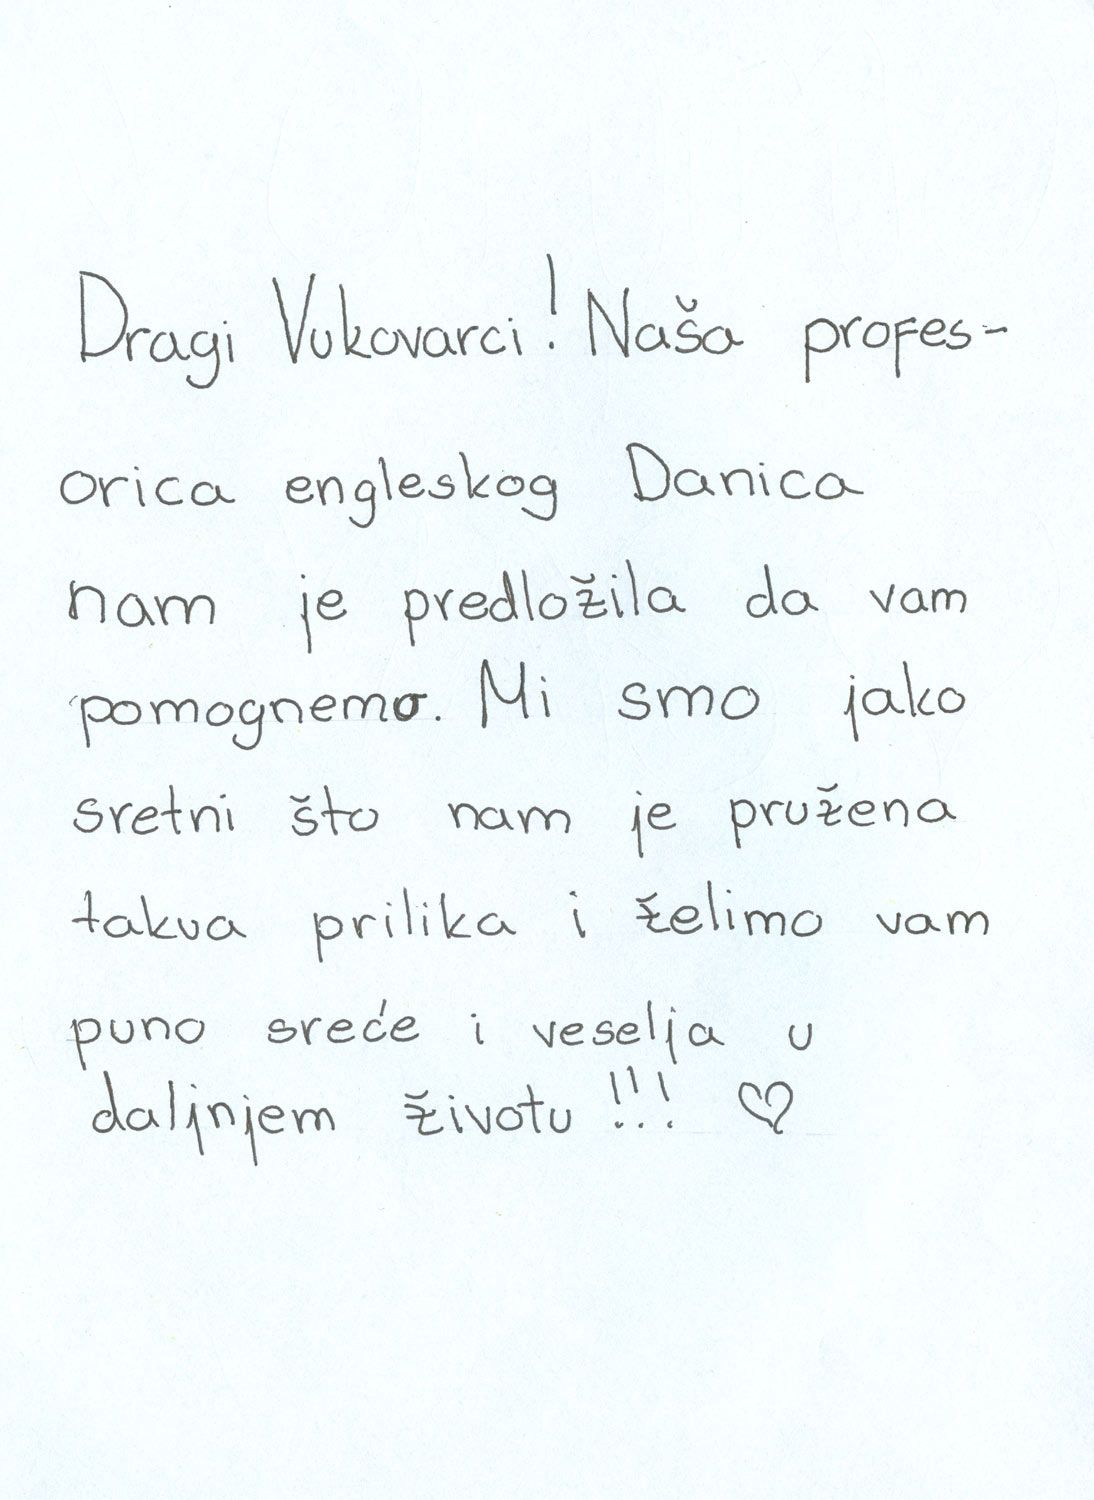 Dragi Vukovarci! Naša profes-
orica engleskog Danica
nam je predložila da vam
pomognemo. Mi smo jako
sretni što nam je pružena
takva prilika i želimo vam
puno sreće i veselja u
daljnjem životu!!! ♡